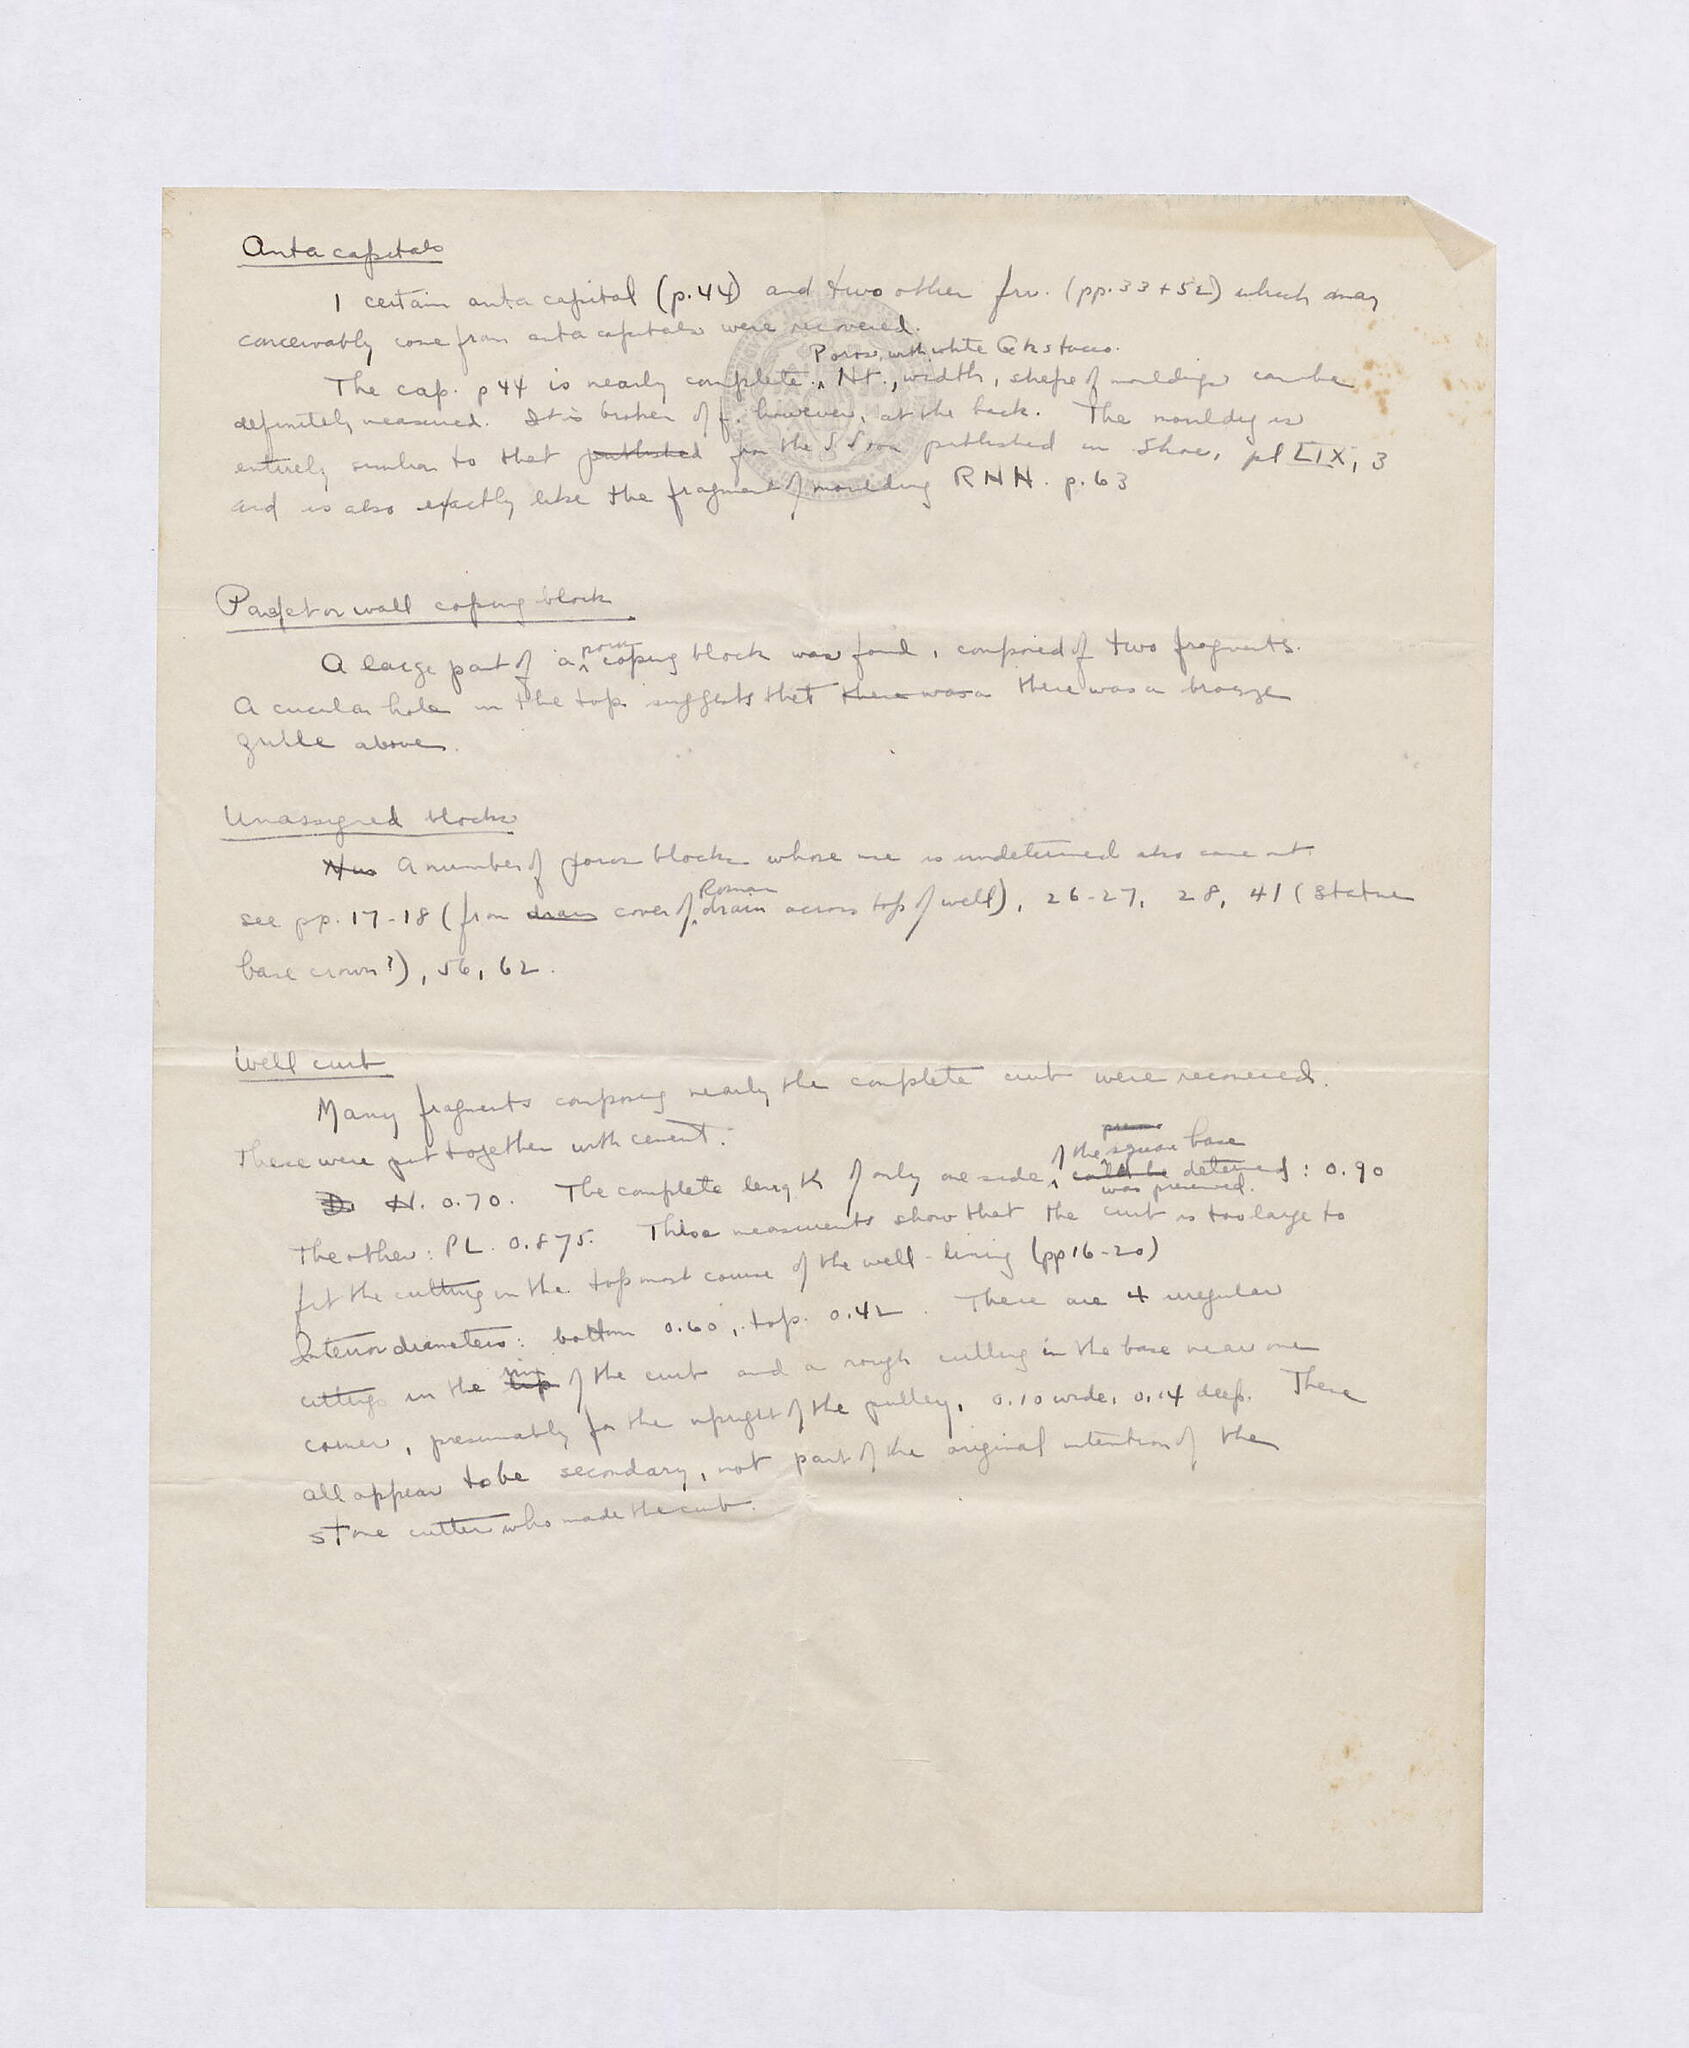 Anta capitals
1 certain anta capital (p. 44) and two other frr. (pp. 33 + 52) which may
conceivably come from anta capitals were recovered.
Poros, with white Gk stucco.
The cap. p 44 is nearly complete. Ht., width, shape of mouldings can be
definitely measured. It is broken off, however, at the back. The moulding is
entirely similar to that published from the S Stoa published in Shoe, pl LIX, 3
and is also exactly like the fragment of moulding RNH. p. 63
Parapet or wall coping block
A large part of a poros coping block was found, composed of two fragments.
A circular hole in the top suggests that there was a there was a bronze
grille above.
Unassigned blocks
A number of poros blocks whose use is undetermined also came out.
see pp. 17-18 (from drain cover of Roman drain across top of well), 26-27, 28, 41 (statue
base crown?), 56, 62.
Well curb
Many fragments composing nearly the complete curb were recovered.
These were put together with cement.
H. 0.70. The complete length of only one side of the square base could be determined was preserved: 0.90
The other: PL. 0.875. These measurements show that the curb is too large to
fit the cutting in the topmost course of the well-lining (pp 16-20)
Interior diameters: bottom 0.60, top. 0.42. There are 4 irregular
cuttings in the lip rim of the curb and a rough cutting in the base near one
corner, presumably for the upright of the pulley, 0.10 wide, 0.14 deep. These
all appear to be secondary, not part of the original intention of the
stone cutter who made the curb.